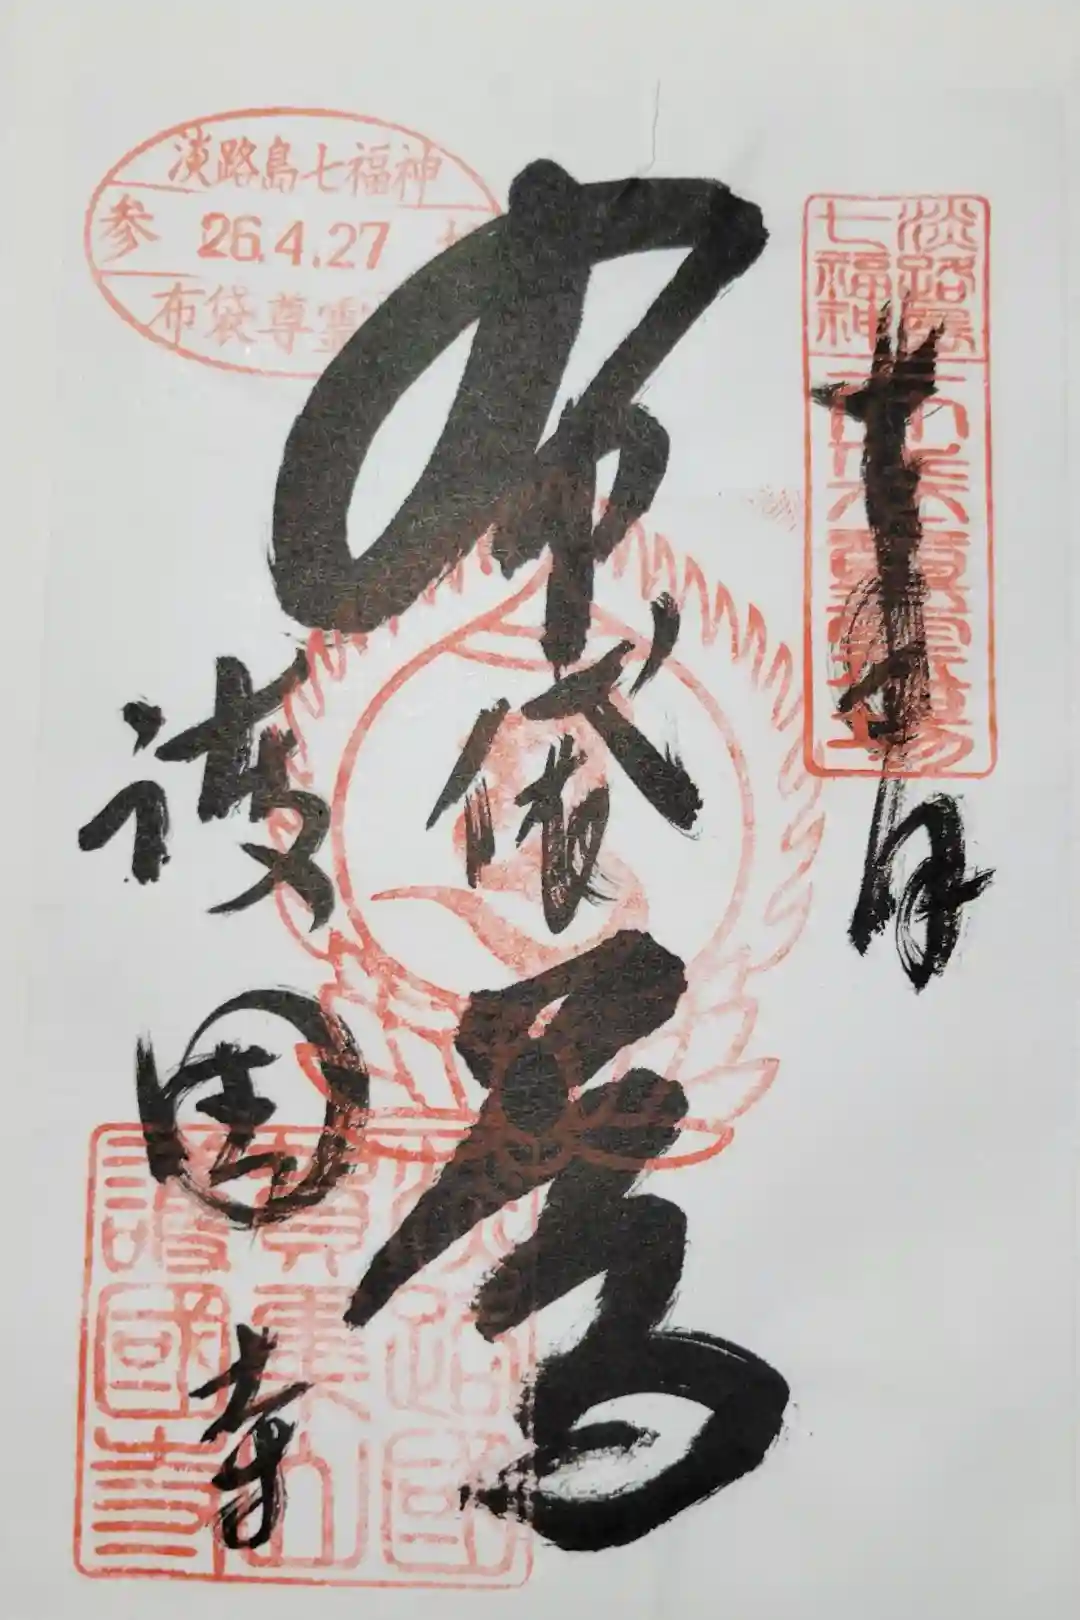 淡路島七福神
参 26.4.27
布袋尊霊
淡路島
七福神
布袋尊霊場
奉拝
布袋尊
護国寺
淡路國
寶集山
護國寺